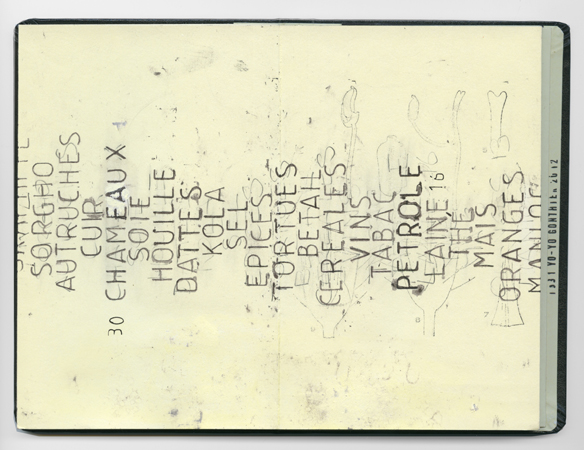 SORGHO
AUTRUCHES
CUIR
30 CHAMEAUX
SOIE
HOUILLE
DATTES
KOLA
SEL
EPICES
TORTUES
BETAIL
CEREALES
VINS
TABAC
PETROLE
LAINE 16
THE
MAIS
ORANGES
MANIOC
YO-YO GONTHIER 2012